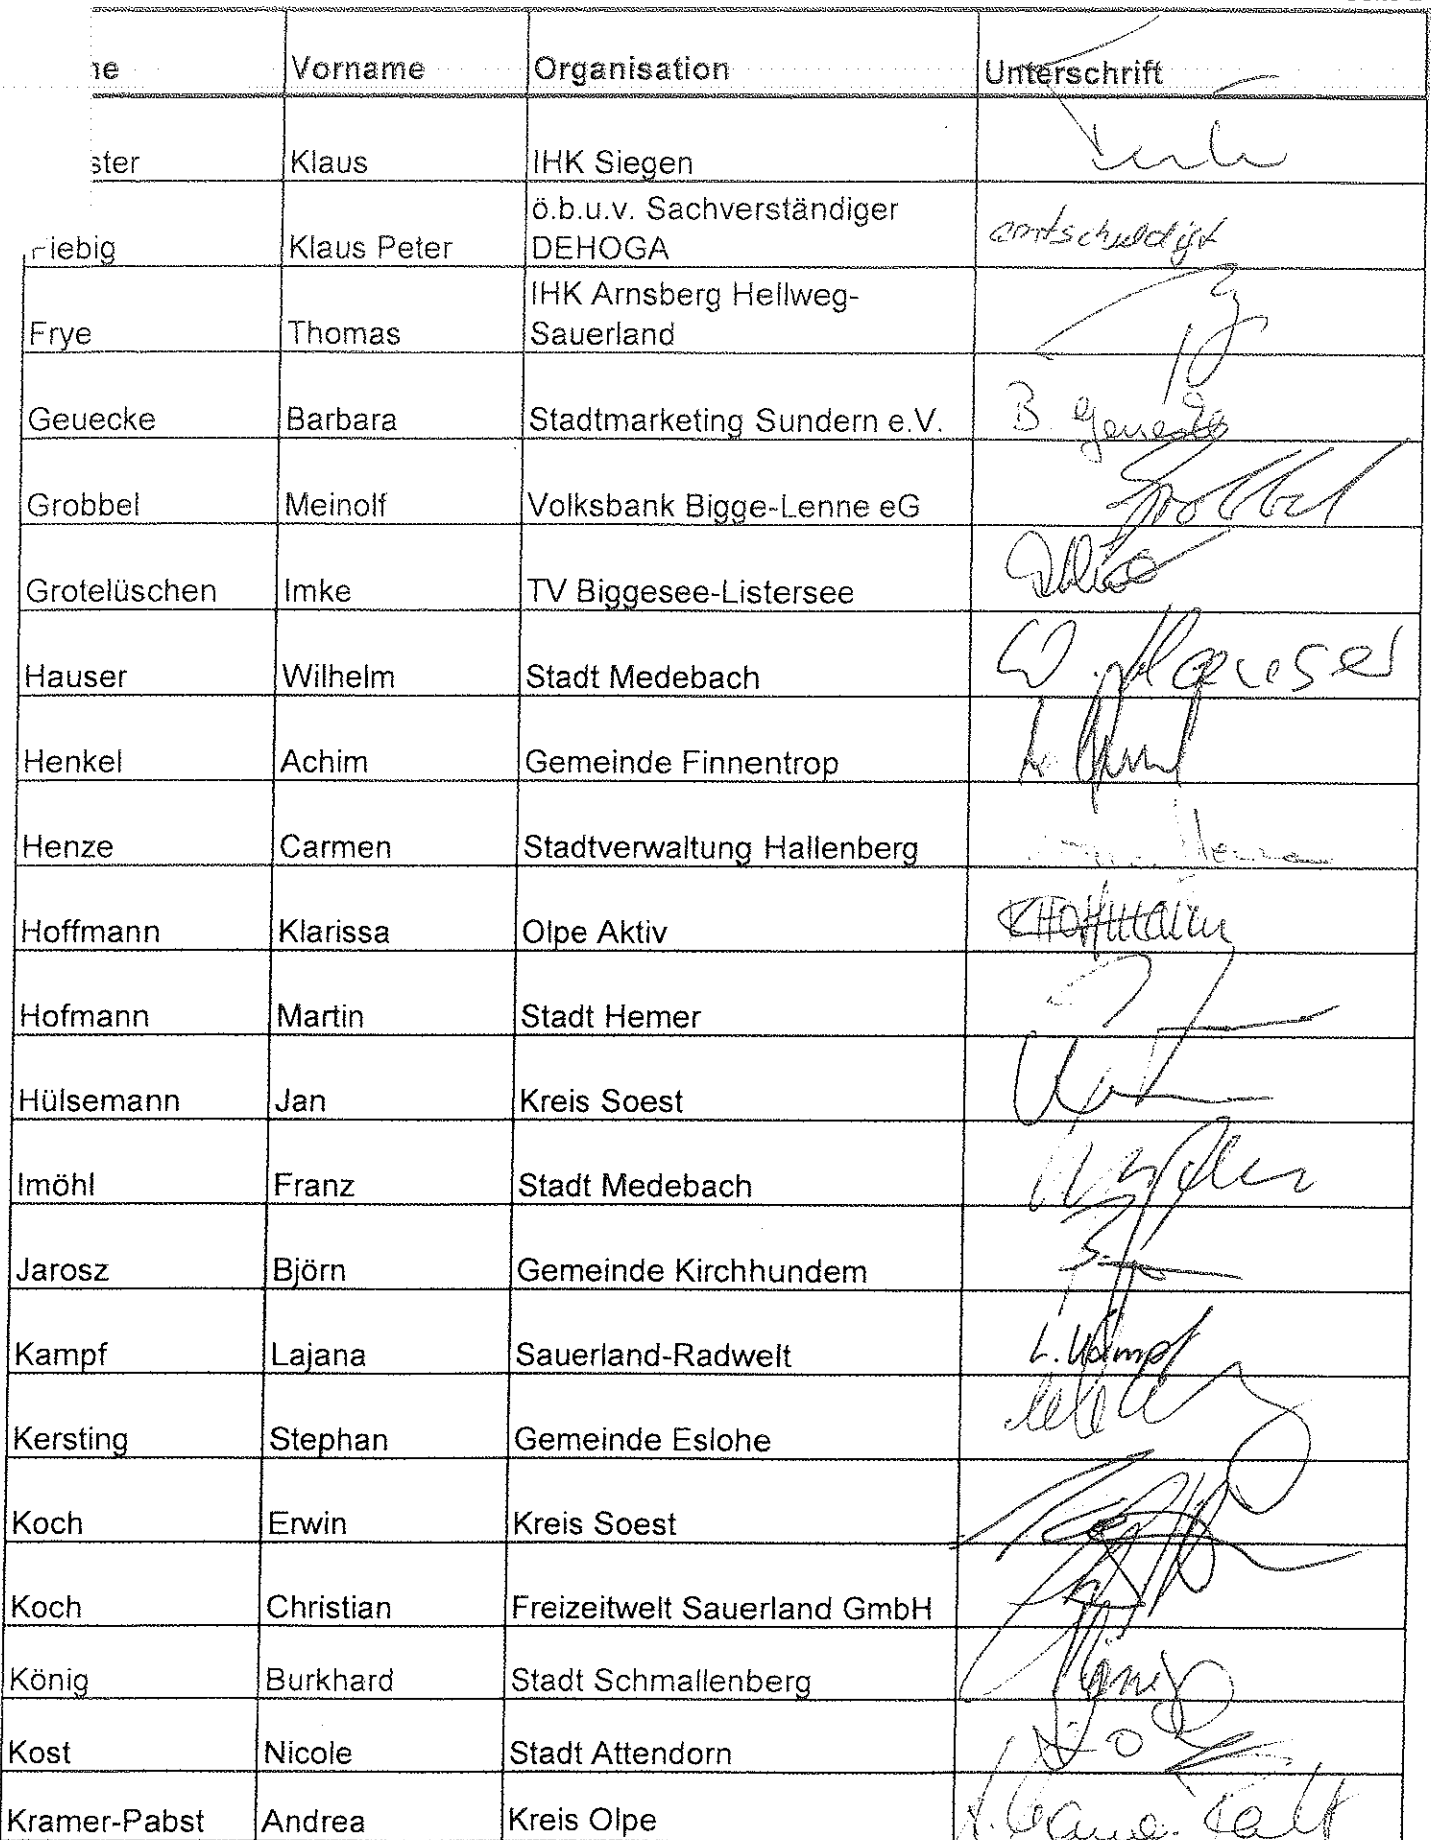 Vorname Organisation Unterschrift
Klaus IHK Siegen
ö.b.u.v. Sachverständiger
Klaus Peter DEHOGA entschuldigt
IHK Arnsberg Hellweg-
Frye Thomas Sauerland
Geuecke Barbara Stadtmarketing Sundern e.V. B. Geuecke
Grobbel Meinolf Volksbank Bigge-Lenne eG Grobbel
Grotelüschen Imke TV Biggesee-Listersee
Hauser Wilhelm Stadt Medebach W. Hauser
Henkel Achim Gemeinde Finnentrop
Henze Carmen Stadtverwaltung Hallenberg
Hoffmann Klarissa Olpe Aktiv KHoffmann
Hofmann Martin Stadt Hemer
Hülsemann Jan Kreis Soest
Imöhl Franz Stadt Medebach
Jarosz Björn Gemeinde Kirchhundem
Kampf Lajana Sauerland-Radwelt L. Kampf
Kersting Stephan Gemeinde Eslohe
Koch Erwin Kreis Soest
Koch Christian Freizeitwelt Sauerland GmbH
König Burkhard Stadt Schmallenberg
Kost Nicole Stadt Attendorn
Kramer-Pabst Andrea Kreis Olpe